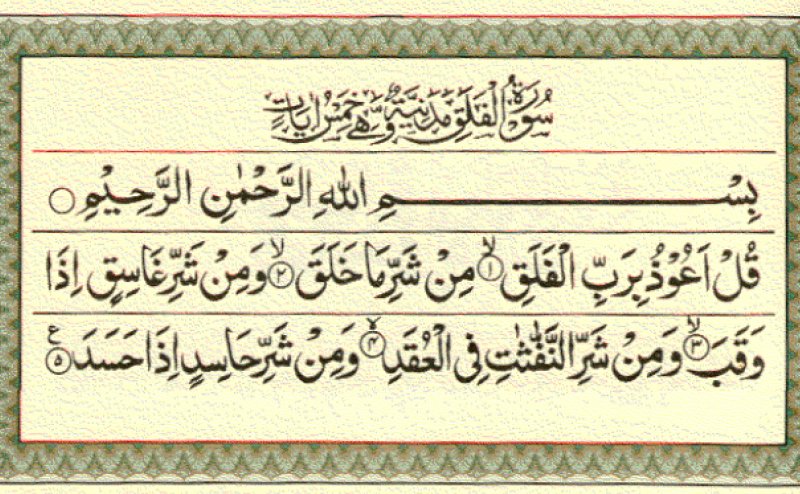 سُوْرَةُ الْفَلَقِ مَدَنِيَّةٌ وَّهِيَ خَمْسُ اٰيَاتٍ
بِسْمِ اللّٰهِ الرَّحْمٰنِ الرَّحِيْمِ ○
قُلْ اَعُوْذُ بِرَبِّ الْفَلَقِ ۙ﴿۱﴾ مِنْ شَرِّ مَا خَلَقَ ۙ﴿۲﴾ وَ مِنْ شَرِّ غَاسِقٍ اِذَا
وَقَبَ ۙ﴿۳﴾ وَ مِنْ شَرِّ النَّفّٰثٰتِ فِى الْعُقَدِ ۙ﴿۴﴾ وَ مِنْ شَرِّ حَاسِدٍ اِذَا حَسَدَ ع﴿۵﴾